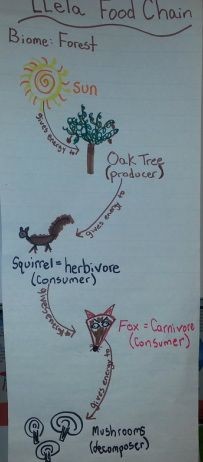 LLela Food Chain
Biome: Forest
Sun
gives energy to
Oak Tree
(producer)
gives energy to
Squirrel = herbivore
(consumer)
gives energy to
Fox = Carnivore
(consumer)
gives energy to
Mushrooms
(decomposer)